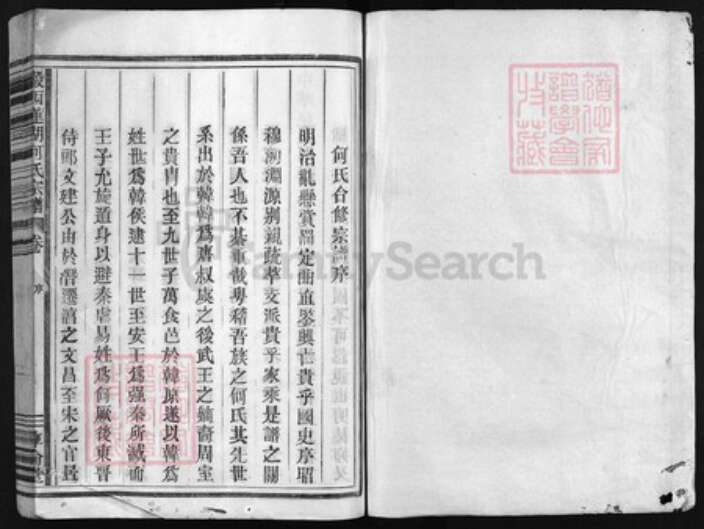 何氏合修宗譜序
明治亂懸賞罰定曲直鑒興亡貴乎國史序昭
穆溯淵源別親疏萃支派貴乎家乘是譜之關
係吾人也不綦重哉粵稽吾族之何氏其先世
系出於韓韓爲唐叔虞之後武王之嫡裔周室
之貴胄也至九世子萬食邑於韓原遂以韓爲
姓世爲韓侯逮十一世至安王爲强秦所滅而
王子允旋遁身以避秦虐易姓爲何厥後東晉
侍郎文建公由於潛遷
之文昌至宋之官
何氏宗譜
卷
序
FamilySearch